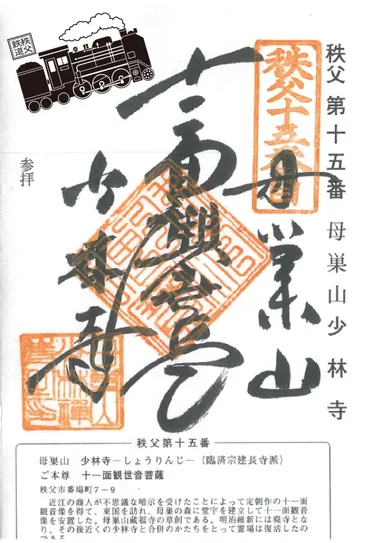 秩父 第十五番 母巣山少林寺
秩父十五番
母巣山
十一面観世音
少林寺
参拝
秩父第十五番
母巣山 少林寺－しょうりんじ－（臨済宗建長寺派）
ご本尊 十一面観世音菩薩
秩父市番場町７－９
近江の商人が不思議な啓示を受けたことによって定朝作の十一面
観音像を得て、東国を訪れ、母巣の森に堂宇を建立して十一面観音
像を安置した。母巣山蔵福寺の草創である。明治維新には廃寺とな
り、その後近くの少林寺と合併のかたちをとって霊場は復活したの
である。